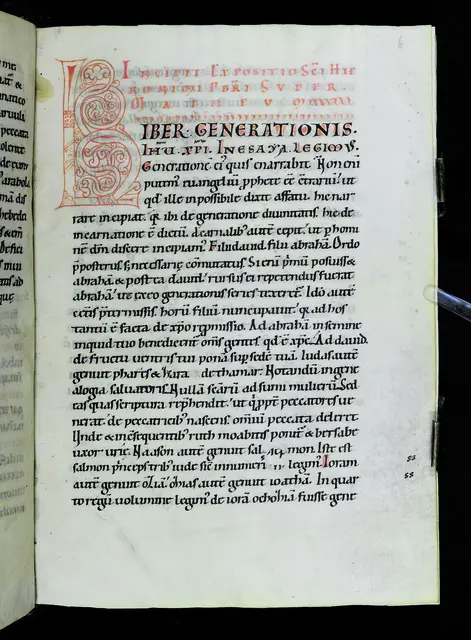 INCIPIT EXPOSITIO SCI HIE
RONIMI PBRI SUPER
MATHEUM
LIBER GENERATIONIS.
IHU. XPI. IN ESAYA. LEGIMUS.
Generatione ei quis enarrabit. Non enī
putem euangeliū pphete eē c̄trariū. ut
qd ille impossibile dixit affatu. hic nar
rare incipiat. quia ibi de generatione diuinitatis. hic de
incarnatione ē dictū. A carnalib; autē cepit. ut p homi
nē dm̄ discere incipiam;. Filii dauid. filii abrahā. Ordo
pposterus. s; necessarie cōmutatus. Si enī primū posuiss&
abrahā. & postea dauid. rursus ei repetendus fuerat
abrahā. ut sic eo generationis series texeret̄. Ideo autē
cet̄is ptermissis. horū filiū nuncupauit. quia ad hos
tantū ē facta de xpo repmissio. Ad abrahā in semine
inquid tuo benedicent̄ oms gentes. qd ē xpc. Ad dauid.
de fructu uentris tui ponā sup sedē tuā. Iudas autē
genuit phares & zara de thamar. Notandū in gene
alogia saluatoris. Nullā scārū adsumi mulierū. Sed
eas quas scriptura rephendit. ut qi ppt̄ peccatores ue
nerat. de peccatricib; nascens. omniū peccata deleret.
Unde & in cōsequentib; ruth moabitis ponit̄. & bersabe
uxor urie. Naason autē genuit salmon. Iste est
salmon princeps trib; iude sic in numeri legim;. Ioram
autē genuit oziā. ozias autē genuit ioathā. In quar
to regū uolumine legim; de iorā ochoziā fuisse gene